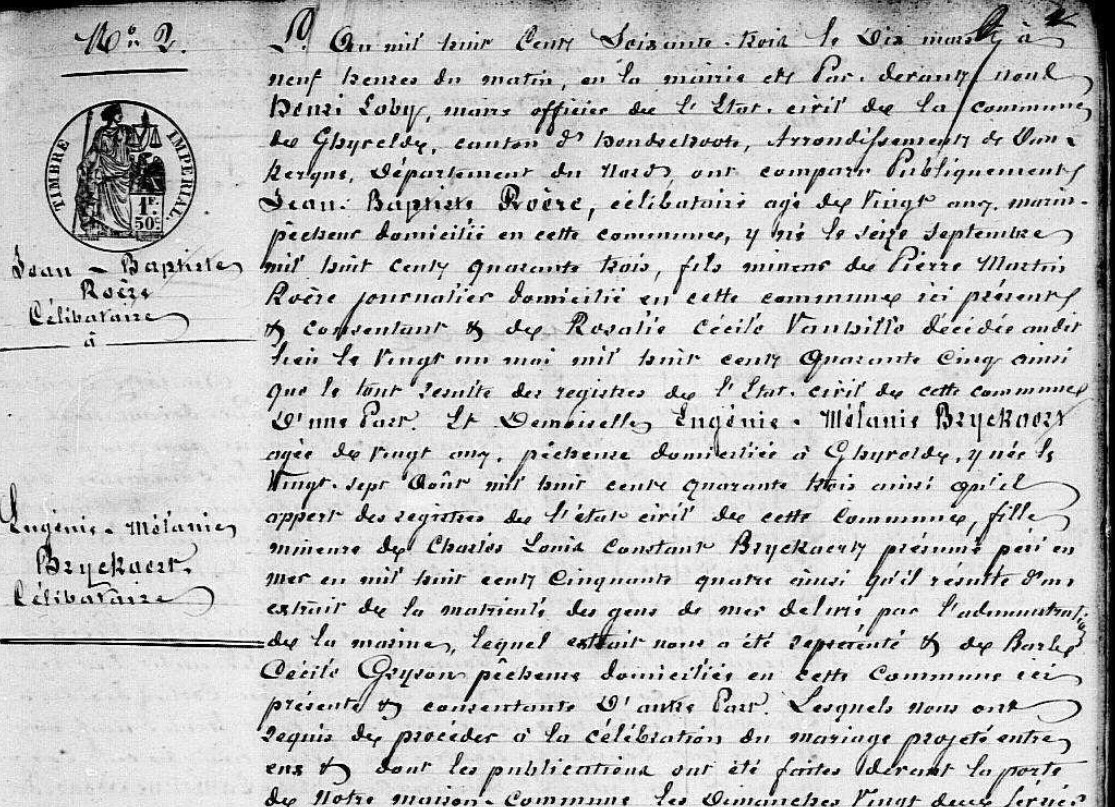 No. 2.
TIMBRE IMPERIAL.
1F.
50c.
Jean - Baptiste
Roère
Célibataire
à
Eugénie - Mélanie
Bryckaert.
Célibataire
L'an mil huit cent soixante-trois le Dix mars à
neuf heures du matin, en la mairie et Par-devant nous
Henri Loby, maire officier de l'Etat-civil de la commune
de Ghyvelde, canton d'hondschoote, Arrondissement de Dun-
kerque, Département du Nord, ont comparu Publiquement
Jean-Baptiste Roère, célibataire agé de Vingt ans, marin-
pêcheur domicilié en cette commune, y né le seize septembre
mil huit cent quarante trois, fils mineur de Pierre Martin
Roère journalier domicilié en cette commune ici présent
& consentant & de Rosalie Cécile Vanhille décédée audit
lieu le Vingt un mai mil huit cent quarante cinq ainsi
que le tout résulte des registres de l'Etat-civil de cette commune
D'une Part. Et Demoiselle Eugénie-Mélanie Bryckaert
agée de Vingt ans, pêcheuse domiciliée à Ghyvelde, y née le
Vingt-sept Août mil huit cent quarante trois ainsi qu'il
appert des registres de l'état civil de cette commune, fille
mineure de Charles Louis Constant Bryckaert présumé péri en
mer en mil huit cent cinquante quatre ainsi qu'il résulte d'un
extrait de la matricule des gens de mer délivré par l'administration
de la marine, lequel extrait nous a été représenté & de Barbe
Cécile Gryson pêcheuse domiciliée en cette commune ici
présente & consentante D'autre Part. Lesquels nous ont
requis de procéder à la célébration du mariage projeté entre
eux & dont les publications ont été faites devant la porte
de Notre maison-Commune les Dimanches Vingt deux